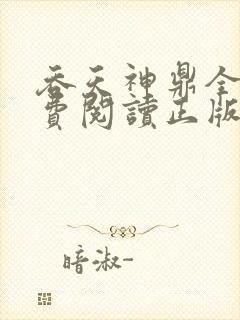 吞天神鼎全
費閱讀正版
暗淑-